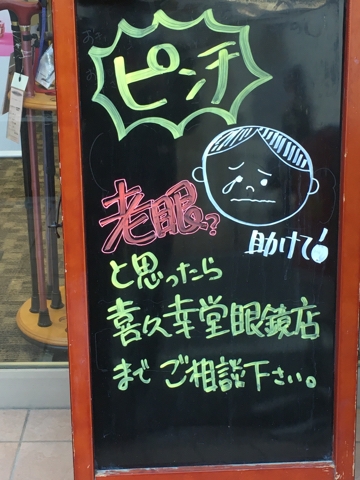 ピンチ
老眼？
助けて！
と思ったら
喜久幸堂眼鏡店
までご相談下さい。